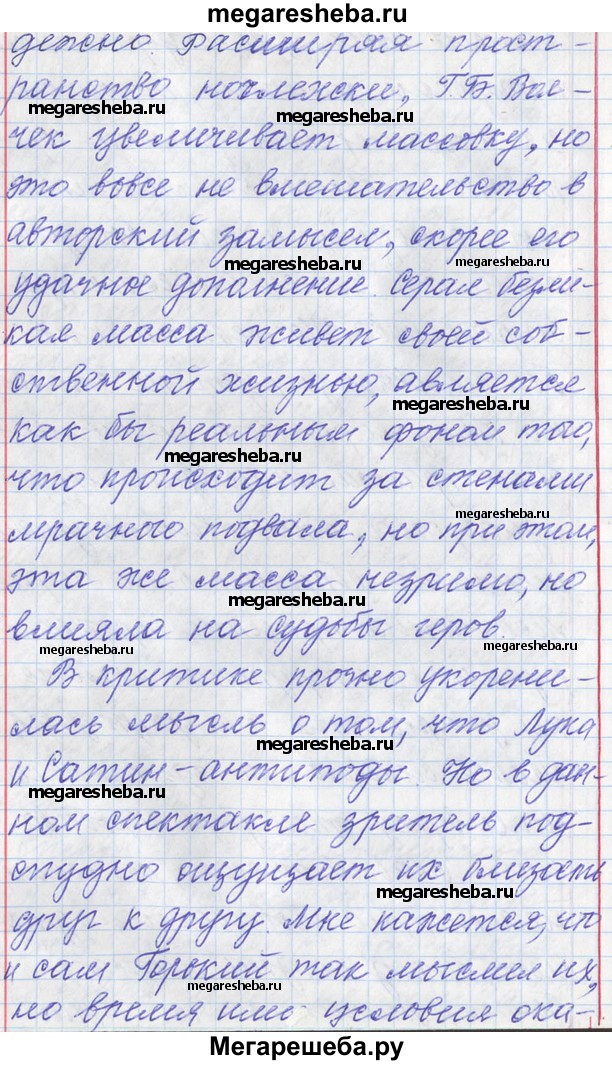 megaresheba.ru
дежно. Расширяя прост-
ранство ночлежки, Г.Б. Вол-
megaresheba.ru megaresheba.ru
чек увеличивает массовку, но
это вовсе не вмешательство в
авторский замысел, скорее его
megaresheba.ru megaresheba.ru
удачное дополнение. Серая безли-
кая масса живет своей соб-
ственной жизнью, является
megaresheba.ru
как бы реальным фоном того,
megaresheba.ru
что происходит за стенами
megaresheba.ru
мрачного подвала, но при этом,
эта же масса незримо, но
megaresheba.ru
влияла на судьбы геров.
megaresheba.ru megaresheba.ru
В критике прочно укорени-
лась мысль о том, что Лука
megaresheba.ru
и Сатин - антиподы. Но в дан-
megaresheba.ru
ном спектакле зритель под-
спудно ощущает их близость
megaresheba.ru
друг к другу. Мне кажется, что
и сам Горький так мыслил их,
megaresheba.ru megaresheba.ru
но время или условия ока-
Мегарешеба.ру